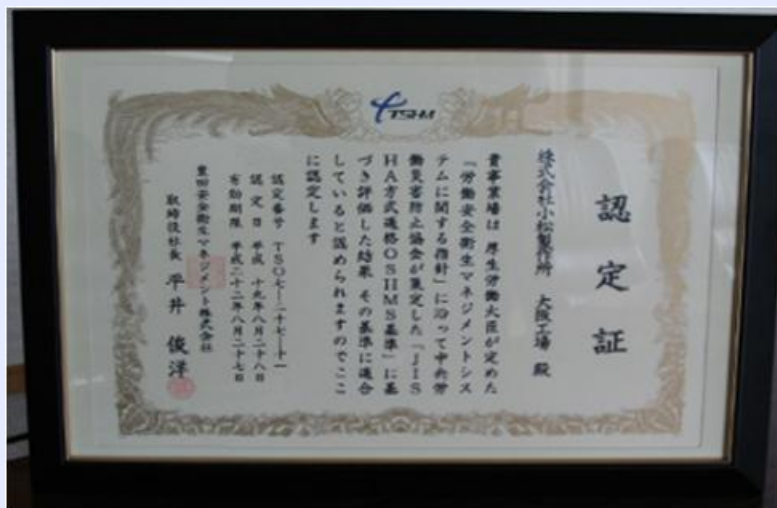 TSHM
認定証
株式会社小松製作所 大阪工場 殿
貴事業場は 厚生労働大臣が定めた
『労働安全衛生マネジメントシス
テムに関する指針』に沿って中央労
働災害防止協会が策定した「JIS
HA方式適格OSHMS基準」に基
づき評価した結果 その基準に適合
していると認められますのでここ
に認定します
認定番号 TS〇七―二十七―十一
認定日 平成 十九年八月二十八日
有効期限 平成二十二年八月二十七日
豊田安全衛生マネジメント株式会社
取締役社長 平井 俊洋